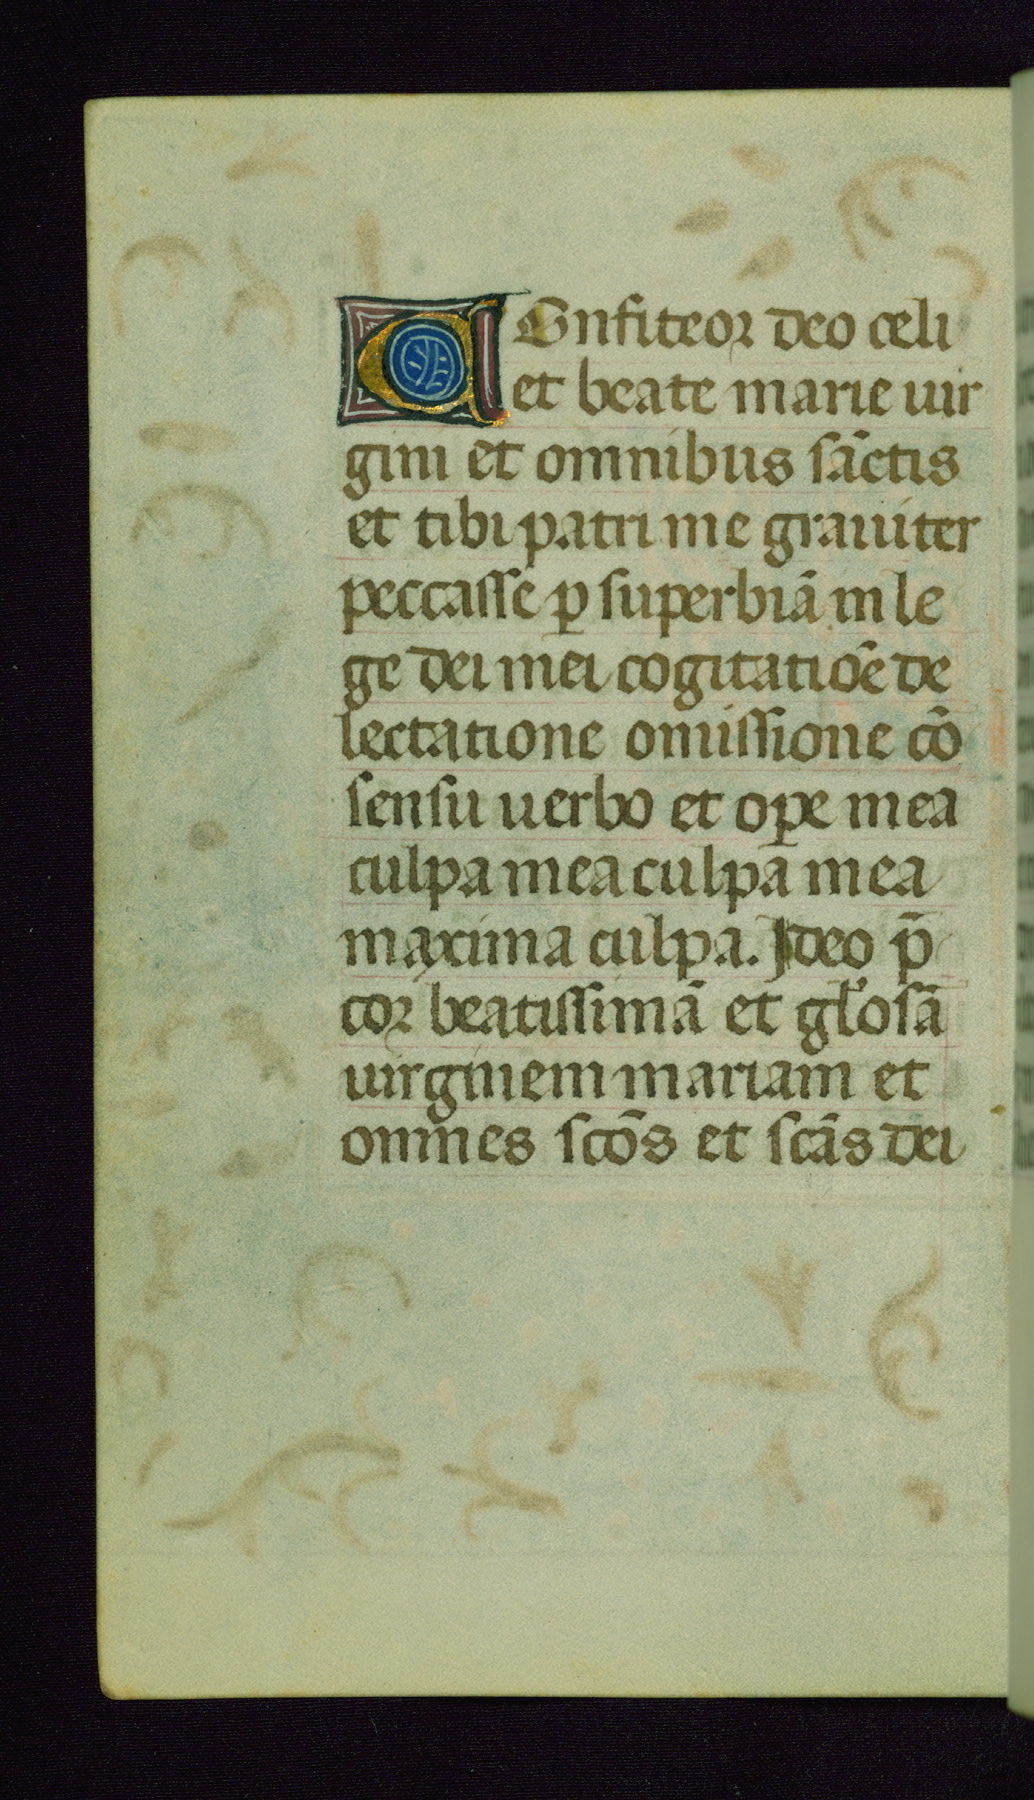 COnfiteor deo celi
et beate marie uir
gini et omnibus sāctis
et tibi patri me grauiter
peccasse ꝑ superbiā in le
ge dei mei cogitatiōe de
lectatione omissione cō
sensu uerbo et oꝑe mea
culpa mea culpa mea
maxima culpa. Ideo p̄
cor beatissimā et gl'osā
uirginem mariam et
omnes scōs et scās dei